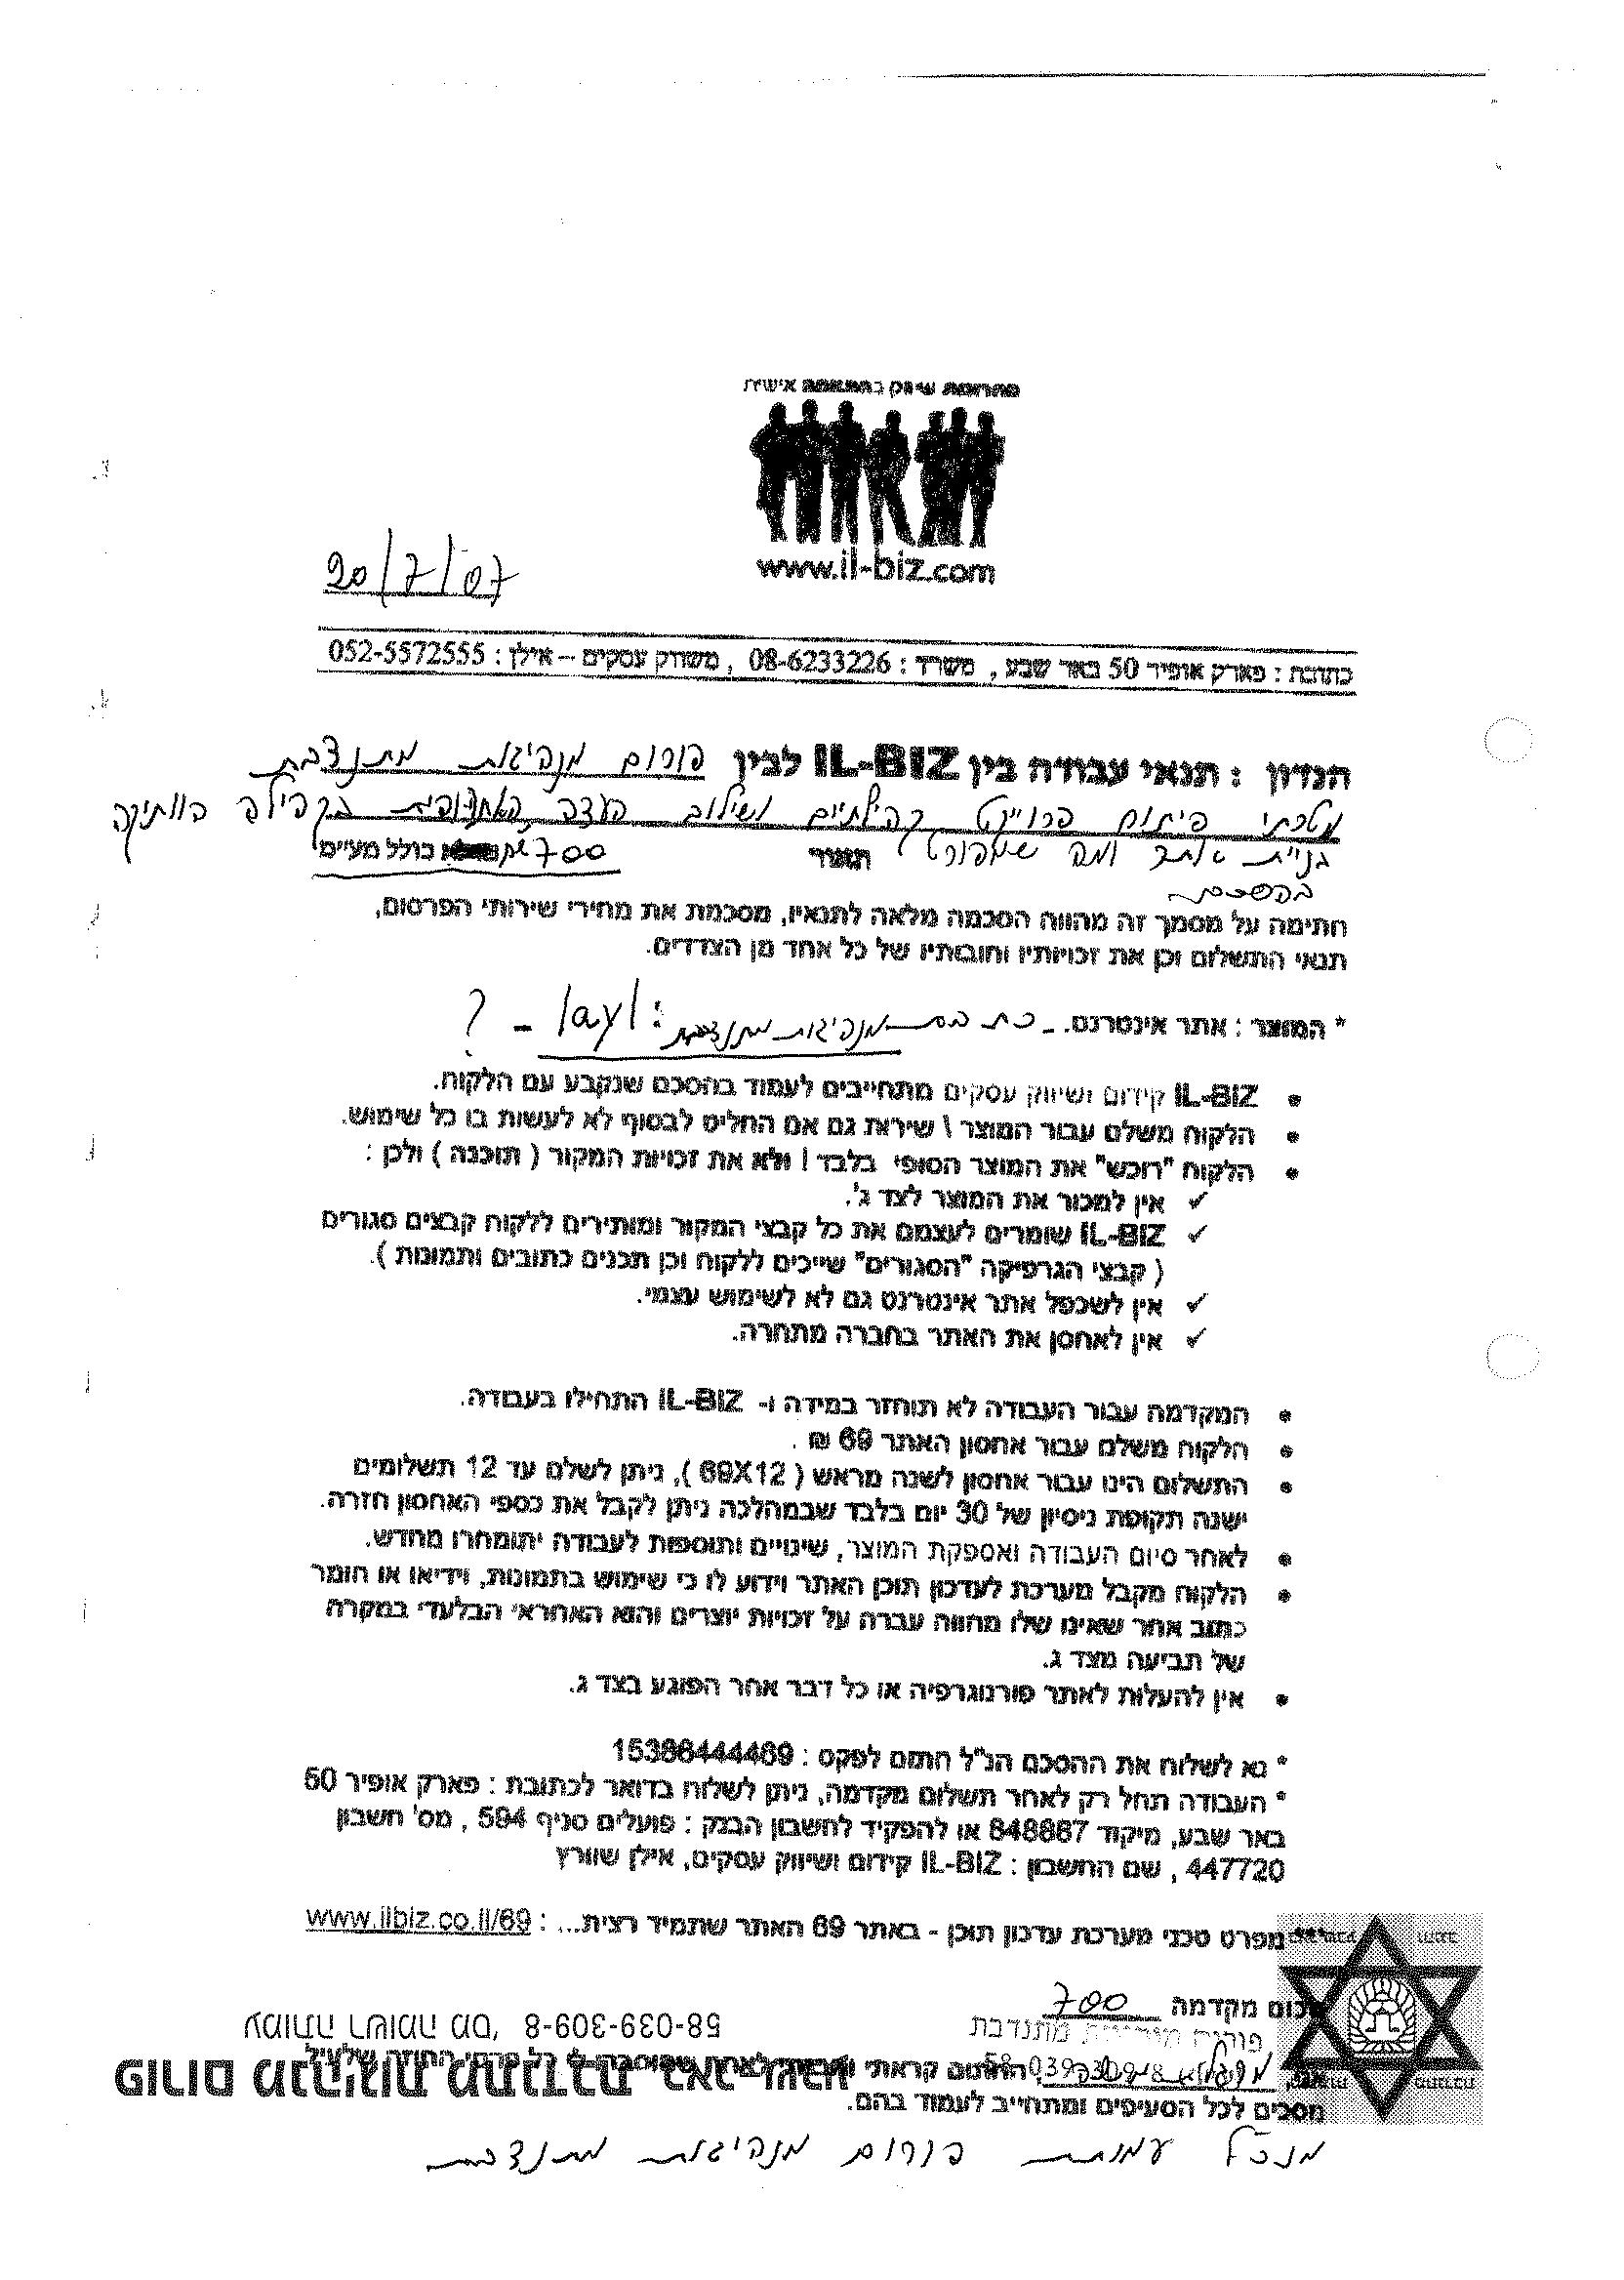 פתרונות שיווק בהתאמה אישית
www.il-biz.com
20/7/07
כתובת : פארק אופיר 50 באר שבע , משרד : 08-6233226 , משווק עסקים – אילן : 052-5572555
הנדון : תנאי עבודה בין IL-BIZ לבין פורום מנהיגות מתנדבת
פרוייקט קהילתיים ושילוב העדה האתיופית בקהילה הוותיקה
בניית אתר ומה שמפורט תאור 700 כולל מע״מ
בהסכם
חתימה על מסמך זה מהווה הסכמה מלאה לתנאיו, מסכמת את מחירי שירותי הפרסום,
תנאי התשלום וכן את זכויותיו וחובותיו של כל אחד מן הצדדים.
* המוצר : אתר אינטרנט. מנהיגות מתנדבת ?
• IL-BIZ קידום ושיווק עסקים מתחייבים לעמוד בהסכם שנקבע עם הלקוח.
• הלקוח משלם עבור המוצר \ שירות גם אם החליט לבסוף לא לעשות בו כל שימוש.
• הלקוח "רוכש" את המוצר הסופי בלבד ! ולא את זכויות המקור ( תוכנה ) ולכן :
✓ אין למכור את המוצר לצד ג'.
✓ IL-BIZ שומרים לעצמם את כל קבצי המקור ומותירים ללקוח קבצים סגורים
( קבצי הגרפיקה "הסגורים" שייכים ללקוח וכן תכנים כתובים ותמונות ).
✓ אין לשכפל אתר אינטרנט גם לא לשימוש עצמי.
✓ אין לאחסן את האתר בחברה מתחרה.
• המקדמה עבור העבודה לא תוחזר במידה ו- IL-BIZ התחילו בעבודה.
• הלקוח משלם עבור אחסון האתר 69 ₪ .
• התשלום הינו עבור אחסון לשנה מראש ( 69X12 ), ניתן לשלם עד 12 תשלומים
ישנה תקופת ניסיון של 30 יום בלבד שבמהלכה ניתן לקבל את כספי האחסון חזרה.
• לאחר סיום העבודה ואספקת המוצר, שינויים ותוספות לעבודה יתומחרו מחדש.
• הלקוח מקבל מערכת לעדכון תוכן האתר וידוע לו כי שימוש בתמונות, וידיאו או חומר
כתוב אחר שאינו שלו מהווה עברה על זכויות יוצרים והוא האחראי הבלעדי במקרה
של תביעה מצד ג.
• אין להעלות לאתר פורנוגרפיה או כל דבר אחר הפוגע בצד ג.
* נא לשלוח את ההסכם הנ"ל חתום לפקס : 15386444469
* העבודה תחל רק לאחר תשלום מקדמה, ניתן לשלוח בדואר לכתובת : פארק אופיר 50
באר שבע, מיקוד 848867 או להפקיד לחשבון הבנק : פועלים סניף 594 , מס' חשבון
447720 , שם החשבון : IL-BIZ קידום ושיווק עסקים, אילן שוורץ
** מפרט טכני מערכת עדכון תוכן - באתר 69 האתר שתמיד רצית... : www.ilbiz.co.il/69
סכום מקדמה 700
פורום מנהיגות מתנדבת
עמותה רשומה מס' 58-039-309-8
החתום קראתי
פורום מנהיגות מתנדבת
מסכים לכל הסעיפים ומתחייב לעמוד בהם.
מנכ"ל עמותת פורום מנהיגות מתנדבת